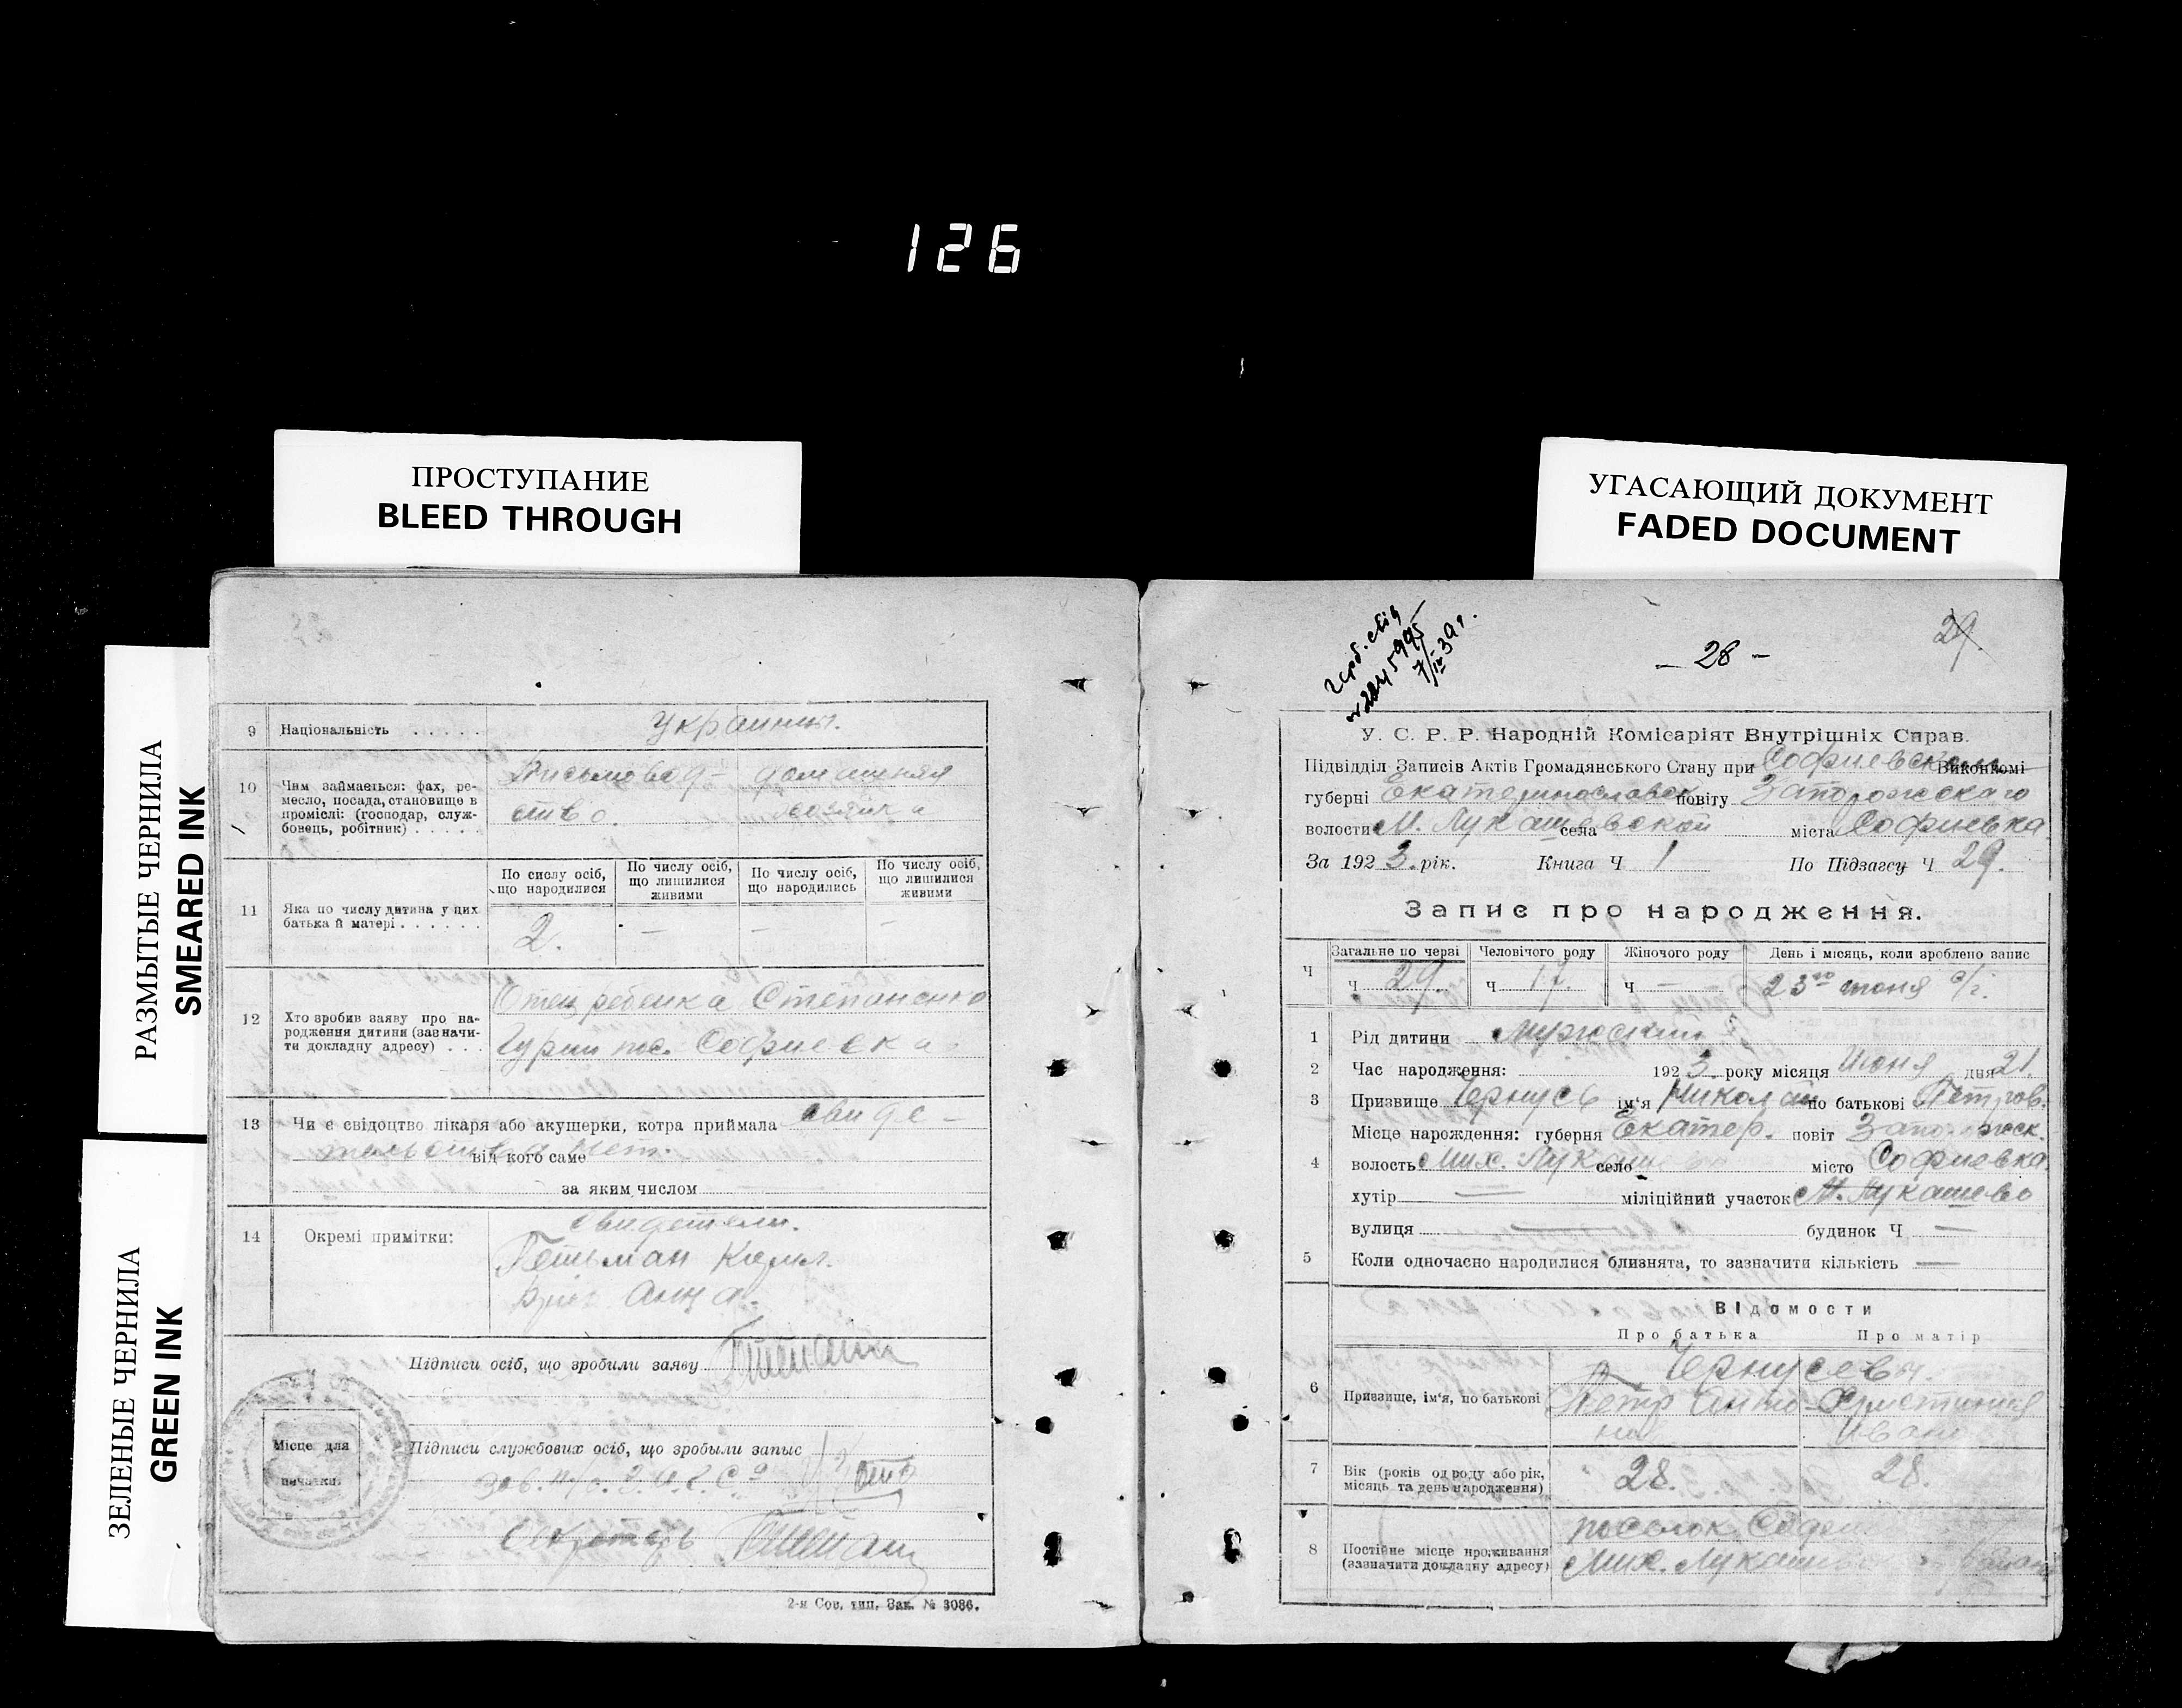 126
ПРОСТУПАНИЕ
BLEED THROUGH
УГАСАЮЩИЙ ДОКУМЕНТ
FADED DOCUMENT
РАЗМЫТЫЕ ЧЕРНИЛА
SMEARED INK
ЗЕЛЕНЫЕ ЧЕРНИЛА
GREEN INK
9 Національність . . . . . .
10 Чим займається: фах, ре-
месло, посада, становище в
промислі: (господар, служ-
бовець, робітник) . . . . .
Письмовод- домашняя
ство.
11 Яка по числу дитина у цих
батька й матері . . . . . .
По сислу осіб,
що народилися
По числу осіб,
що лишилися
живими
По числу осіб,
що народились
По числу осіб,
що лишилися
живими
2. — —  —
12 Хто зробив заяву про на-
родження дитини (зазначи-
ти докладну адресу) . . .
Отец ребенка Степаненко
Софиевка
13 Чи є свідоцтво лікаря або акушерки, котра приймала свиде-
тельства нет. від кого саме
за яким числом
14 Окремі примітки:
Свидетели.
Гетьман
Анна.
Підписи осіб, що зробили заяву
Місце для
печатки.
Підписи службових осіб, що зробыли запыс
Секретарь
2-я Сов. тип. Зак. № 3086.
- 28 -
29
У. С. Р. Р. Народній Комісаріят Внутрішніх Справ.
Підвідділ Записів Актів Громадянського Стану при Софиевском Виконкомі
губерні Екатеринославск повіту Запорожскаго
волости М. Лукашевской села міста Софиевка.
За 1923. рік. Книга Ч 1 По Підзагсу Ч 29.
Запис про народження.
Ч
Загальне по черзі Человічого роду Жіночого роду День і місяць, коли зроблено запис
Ч 29. Ч 17. Ч — 23го июня с/г.
1 Рід дитини Мужской
2 Час народження: 1923. року місяця Июня дня 21.
3 Призвище Чернусь ім'я Николай по батькові Петров.
4 Місце нарождення: губерня Екатер. повіт Запорожск.
волость Мих. Лукаш село місто Софиевка.
хутір — міліційний участок М. Лукашево
вулиця — будинок Ч —
5 Коли одночасно народилися близнята, то зазначити кількість —
Відомости
Про батька Про матір
6 Призвище, ім'я, по батькові
Чернусевы.
Петр Христиния
7 Вік (років од роду або рік,
місяць та день народження)
28. 28.
8 Постійне місце проживання
(зазначити докладну адресу)
поселок Софи
Мих. Лукашево